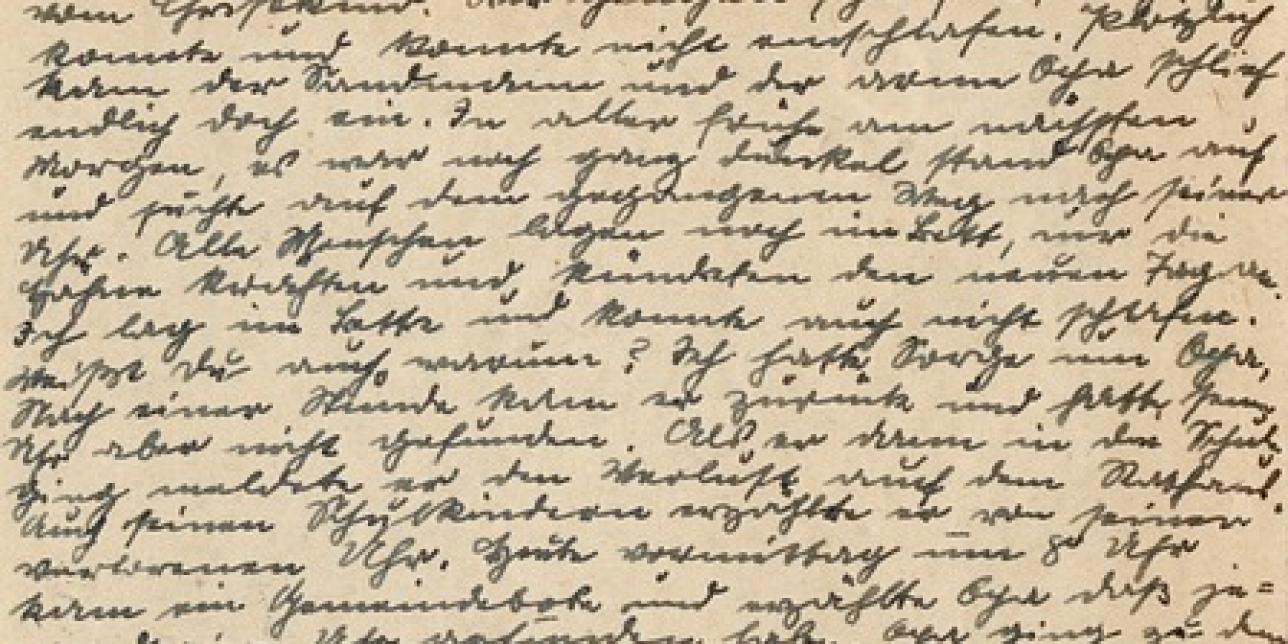 vom Christkind.
konnte und konnte nicht einschlafen. Plötzlich
kam der Sandmann und der arme Opa schlief
endlich doch ein. In aller Frühe am nächsten
Morgen, es war noch ganz dunkel stand Opa auf
und suchte auf dem gegangenen Weg nach seiner
Uhr. Alle Menschen lagen noch im Bett, nur die
Hähne krähten und kündeten den neuen Tag an.
Ich lag im Bette und konnte auch nicht schlafen.
Weißt Du auch warum? Ich hatte Sorge um Opa,
Nach einer Stunde kam er zurück und hatte seine
Uhr aber nicht gefunden. Als er dann in die Schule
ging meldete er den Verlust auf dem Rathaus.
Auch seinen Schulkindern erzählte er von seiner
verlorenen Uhr. Heute vormittag um 8 Uhr
kam ein Gemeindebote und erzählte Opa daß je=
Uhr gefunden hab. Opa ging zu de